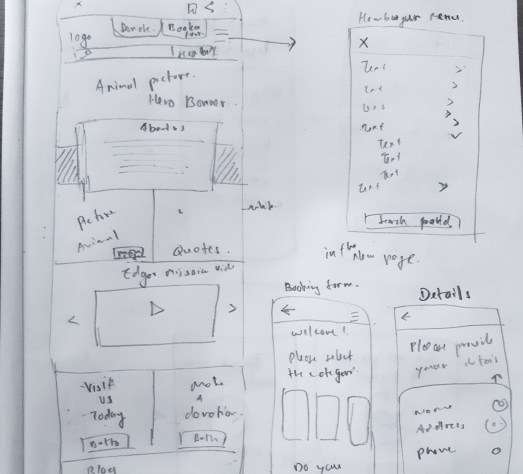 Donate
Logo
Animal picture.
Hero Banner.
About us
Picture
Animal
Quotes.
Edgar mission vid
Visit
us
Today
Button
make
a
donation
Blog
Hamburger menu.
X
Text >
Text >
Text >
Text
Text
Text
Text
Text >
in the New page.
Booking form.
←
welcome!
Please select
the categori
Do you
Details
←
Please provide
your details
Name
Address
phone